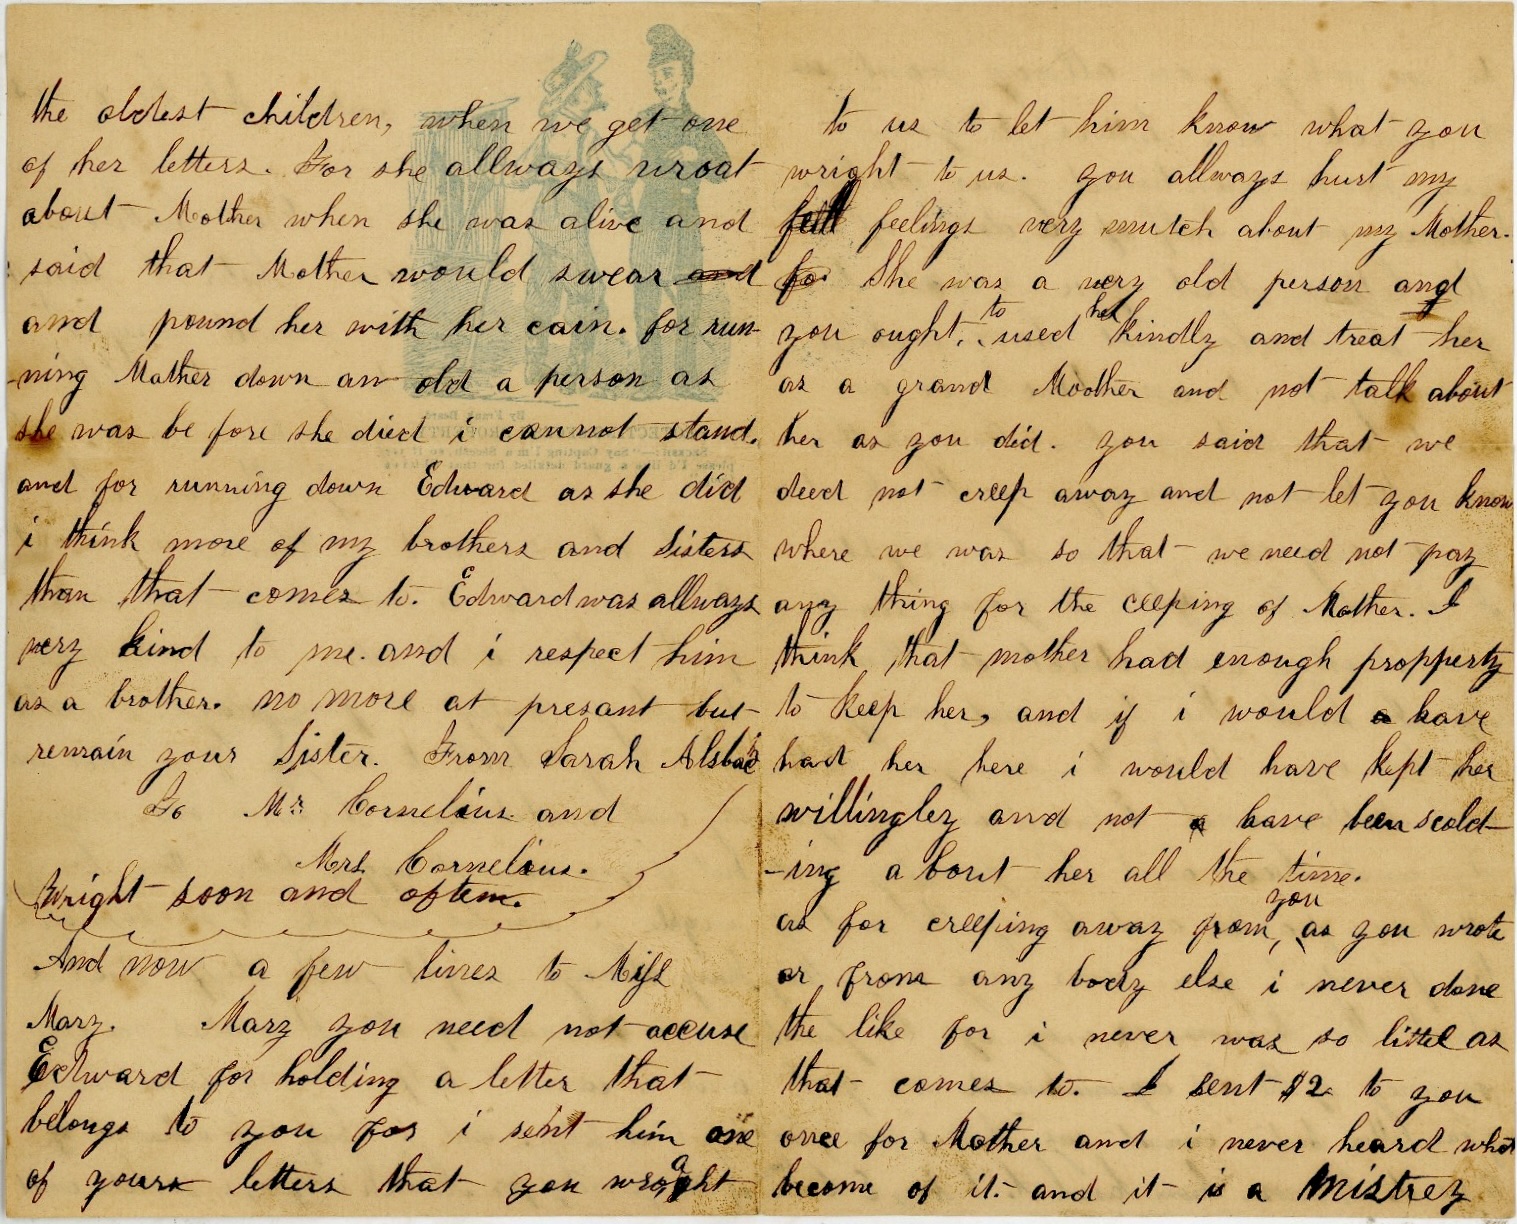 the oldest children, when we get one
of her letters. For she allways wroat
about Mother when she was alive and
said that Mother would swear and
and pound her with her cain. for run-
-ning Mather down an old a person as
she was be fore she died i cannot stand.
and for running down Edward as she did
i think more of my brothers and Sisters
than that comes to. Edward was allways
very kind to me. and i respect him
as a brother. no more at presant but
remain your Sister. From Sarah
To Mr. Cornelius and
Mrs Cornelious.
Wright soon and oftem.
And now a few lines to Miss
Mary. Mary you need not accuse
Edward for holding a letter that
belongs to you for i sent him one
of yours letters that you wroaght
to us to let him know what you
wright to us. you allways hurt my
fell feelings very mutch about my Mother.
for She was a very old person and
you ought, to used her kindly and treat her
as a grand Moother and not talk about
her as you did. you said that we
deed not creep away and not let you know
where we was so that we need not pay
any thing for the ceeping of Mother. I
think that mother had enough propperty
to keep her, and if i would a have
had her here i would have kept her
willingley and not a have been scold-
-ing a bout her all the time.
as for creeping away from, you as you wrote
or from any body else i never done
the like for i never was so littel as
that comes to. I sent $2 to you
once for Mother and i never heard what
become of it. and it is a Mistrey